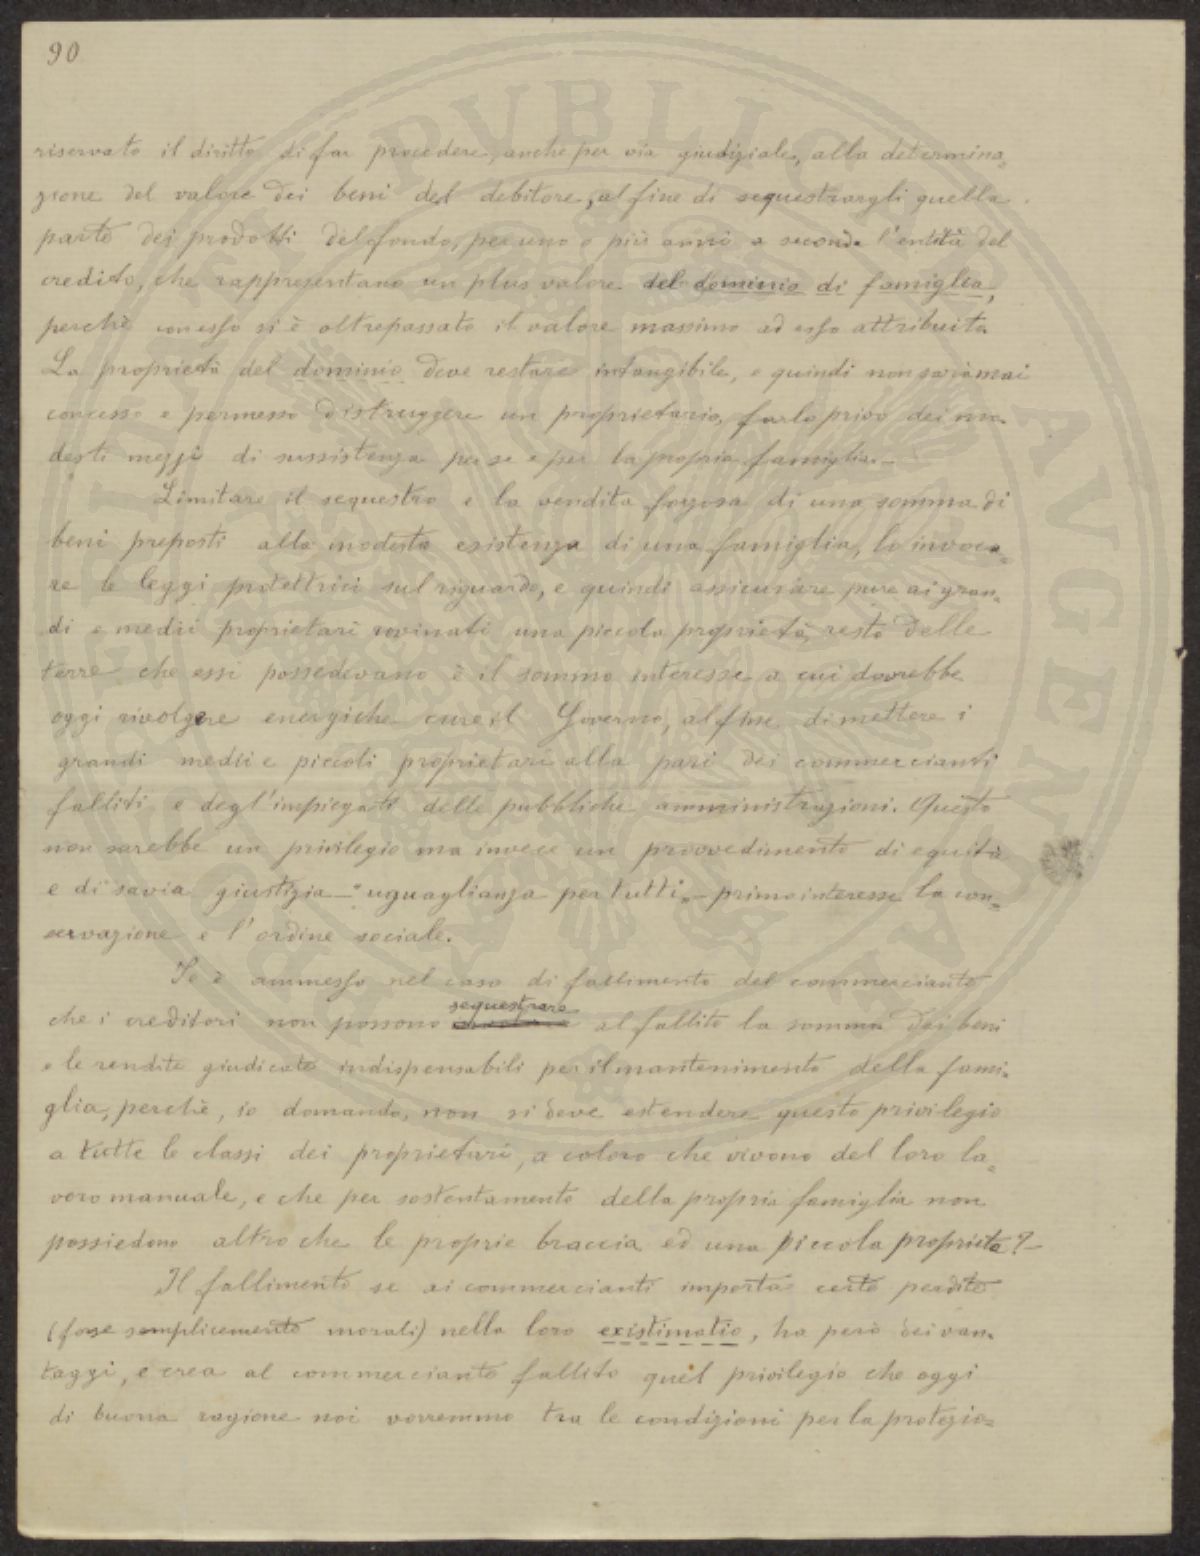 90
riservato il diritto di far procedere, anche per via giudiziale, alla determina=
zione del valore dei beni del debitore, al fine di sequestrargli quella
parte dei prodotti del fondo, per uno o più anni a seconda l'entità del
credito, che rappresentano un plus valore del dominio di famiglia,
perchè con esso si è oltrepassato il valore massimo ad esso attribuito.
La proprietà del dominio deve restare intangibile, e quindi non sarà mai
concesso e permesso distruggere un proprietario, farlo privo dei mo=
desti mezzi di sussistenza per se e per la propria famiglia.—
Limitare il sequestro e la vendita forzosa di una somma di
beni preposti alla modesta esistenza di una famiglia, lo invoca=
re le leggi protettrici sul riguardo, e quindi assicurare pure ai gran=
di e medii proprietari rovinati una piccola proprietà, resto delle
terre che essi possedevano è il sommo interesse a cui dovrebbe
oggi rivolgere energiche cure il Governo, al fine di mettere i
grandi medii e piccoli proprietari alla pari dei commercianti
falliti e degl'impiegati delle pubbliche amministrazioni. Questo
non sarebbe un privilegio ma invece un provvedimento di equità
e di savia giustizia — "uguaglianza per tutti" — primo interesse la con=
servazione e l'ordine sociale.
Se è ammesso nel caso di fallimento del commerciante
che i creditori non possono sequestrare al fallito la somma dei beni
e le rendite giudicate indispensabili per il mantenimento della fami=
glia, perchè, io domando, non si deve estendere questo privilegio
a tutte le classi dei proprietari, a coloro che vivono del loro la=
voro manuale, e che per sostentamento della propria famiglia non
possiedono altro che le proprie braccia ed una piccola proprietà?—
Il fallimento se ai commercianti importa certe perdite
(forse semplicemente morali) nella loro existimatio, ha però dei van=
taggi, e crea al commerciante fallito quel privilegio che oggi
di buona ragione noi vorremmo tra le condizioni per la protezio=
PVBLICAE AVGENDO